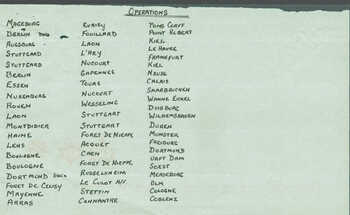 OPERATIONS
MAGEBURG
BERLIN
AUGSBURG
STUTTGARD
STUTTGARD
BERLIN
ESSEN
NUREMBURG
ROUEN
LAON
MONTDIDIER
HAINE
LENS
BOULOGNE
BOULOGNE
DORTMOND
FORET DE CERISY
MAYENNE
ARRAS
FOUILLARD
LAON
L'HEY
NUCOURT
GAPENNES
TOURS
NUCOURT
WESSELING
STUTTGART
STUTTGART
FORET DE NIEPPE
ACQUET
CAEN
FORET DE NIEPPE
RUSSELHEIM
LE CULOT A/F
STETTIN
CONNANTRE
POINT ROBERT
KIEL
LE HAVRE
FRANKFURT
KIEL
NEUSS
CALAIS
SAARBRUCKEN
WANNE EICKEL
DUISBURG
WILHEMSHAVEN
DUREN
MUNSTER
FREIBURG
DORTMUND
URFT DAM
SOEST
MERSEBURG
ULM
COLOGNE
COBLENZ